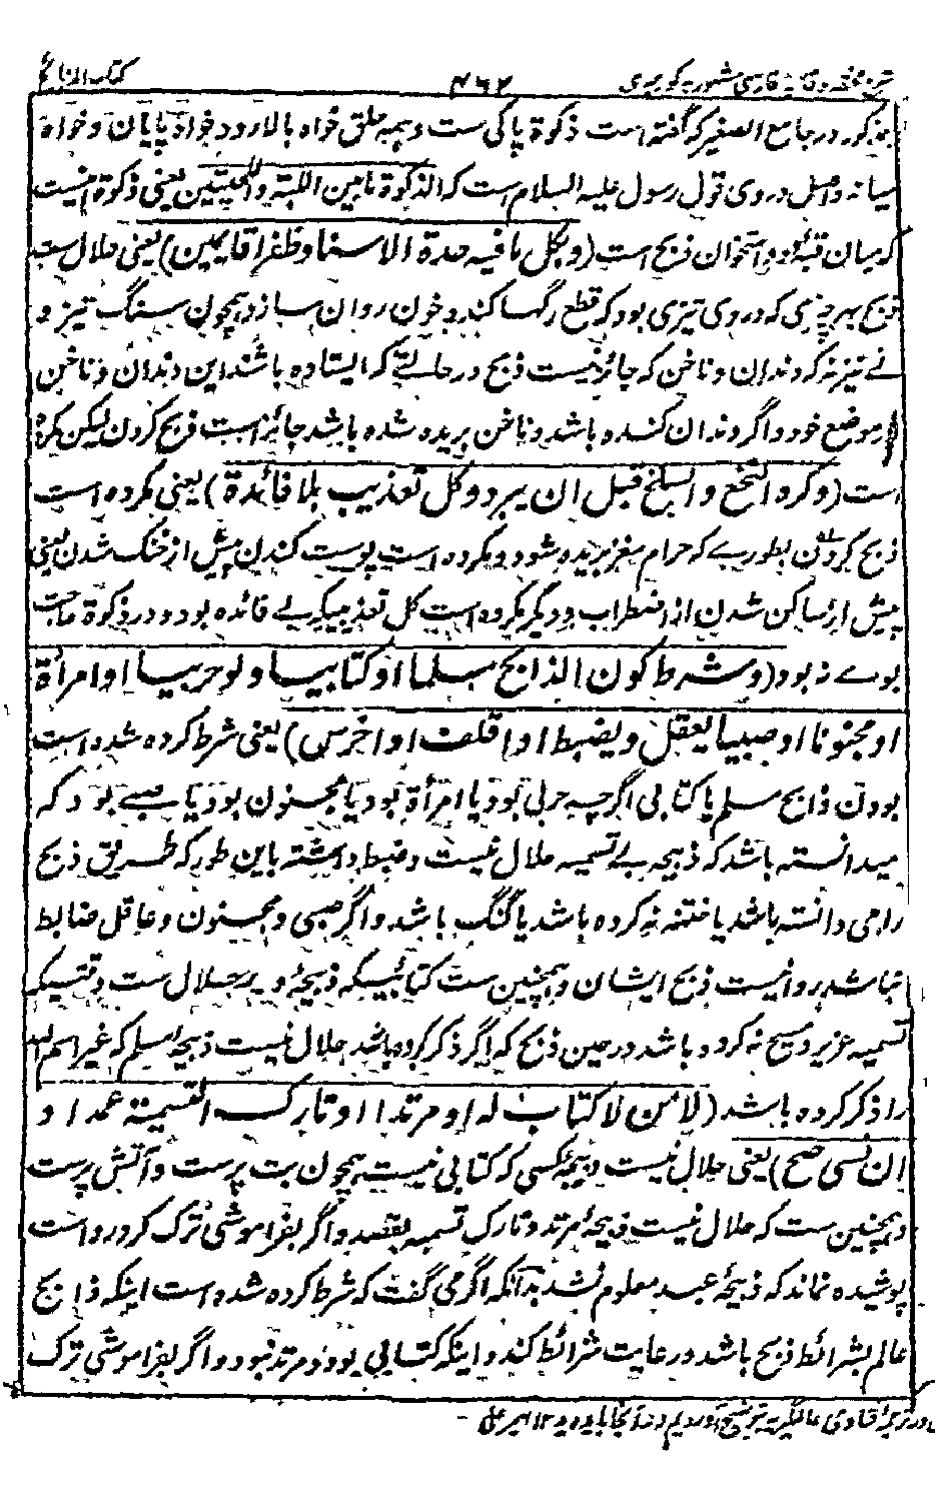 شرح مختصر وقایہ فارسی مشہور بہ کوربیری ۴۶۲ کتاب الذبائح
مذکور در جامع الصغیر کہ گفتہ است ذکوۃ پاکی ست و ہمہ حلق خواہ بالا رود خواہ پایان و خواہ
میانہ و اصل در وی قول رسول علیہ السلام است کہ الذکوۃ ما بین اللبتہ و اللحیتین یعنی ذکوۃ آنست
کہ میان و استخوان ذبح است (و بکل ما فیہ حدۃ الا سنا و ظفرا قایمین) یعنی حلال ست
ذبح بہر چیزی کہ در وی تیزی بود کہ قطع رگہا کند و خون روان سازد ہمچون سنگ تیز و
نے تیز نہ کہ دندان و ناخن کہ جائز نیست ذبح در حالتے کہ ایستادہ باشد این دندان و ناخن
موضع خود و اگر دندان کندہ باشد و ناخن بریدہ شدہ باشد جائز است ذبح کردن لیکن مکروہ
است (و کرہ النخع و السلخ قبل ان یبرد و کل تعذیب بلا فائدۃ) یعنی مکروہ است
ذبح کردن بطورے کہ حرام مغز بریدہ شود و مکروہ است پوست کندن پیش از خنک شدن یعنی
پیش از ساکن شدن از اضطراب و دیگر مکروہ است کل تعذیبیکہ بے فائدہ بود و در ذکوۃ حاجت
بوے نہ بود (و شرط کون الذابح مسلما او کتابیا و لو حربیا او امرأۃ
او مجنونا او صبیا یعقل و یضبط او اقلف او اخرس) یعنی شرط کردہ شدہ است
بودن ذابح مسلم یا کتابی اگرچہ حربی بود یا امرأۃ بود یا مجنون بود یا صبے بود کہ
میدانستہ باشد کہ ذبیحہ بے تسمیہ حلال نیست و ضبط داشتہ باین طور کہ طریق ذبح
را می دانستہ باشد یا ختنہ نہ کردہ باشد یا گنگ باشد و اگر صبی و مجنون و عاقل ضابط
نباشد روا نیست ذبح ایشان و ہمچنین ست کتابییکہ ذبیحۂ وی حلال ست وقتیکہ
تسمیہ عزیر و مسیح نہ کردہ باشد در حین ذبح کہ اگر ذکر کردہ باشد حلال نیست ذبیحہ مسلم کہ غیر اسم اللہ
را ذکر کردہ باشد (لا من لا کتاب لہ او مرتدا او تارک التسمیۃ عمدا و
ان نسی صح) یعنی حلال نیست ذبیحہ کسی کہ کتابی نیست ہمچون بت پرست و آتش پرست
و ہمچنین ست کہ حلال نیست ذبیحۂ مرتد و تارک تسمیہ بقصد و اگر بفراموشی ترک کرد روا ست
پوشیدہ نماند کہ ذبیحۂ عبد معلوم نشد بدانکہ اگر می گفت کہ شرط کردہ شدہ است اینکہ ذابح
عالم بشرائط ذبح باشد و رعایت شرائط کند و اینکہ کتابی بود و مرتد نبود و اگر بفراموشی ترک
در ترجمۂ فتاوی عالمگیریہ توضیح آوردیم ۱۲ امیر علی